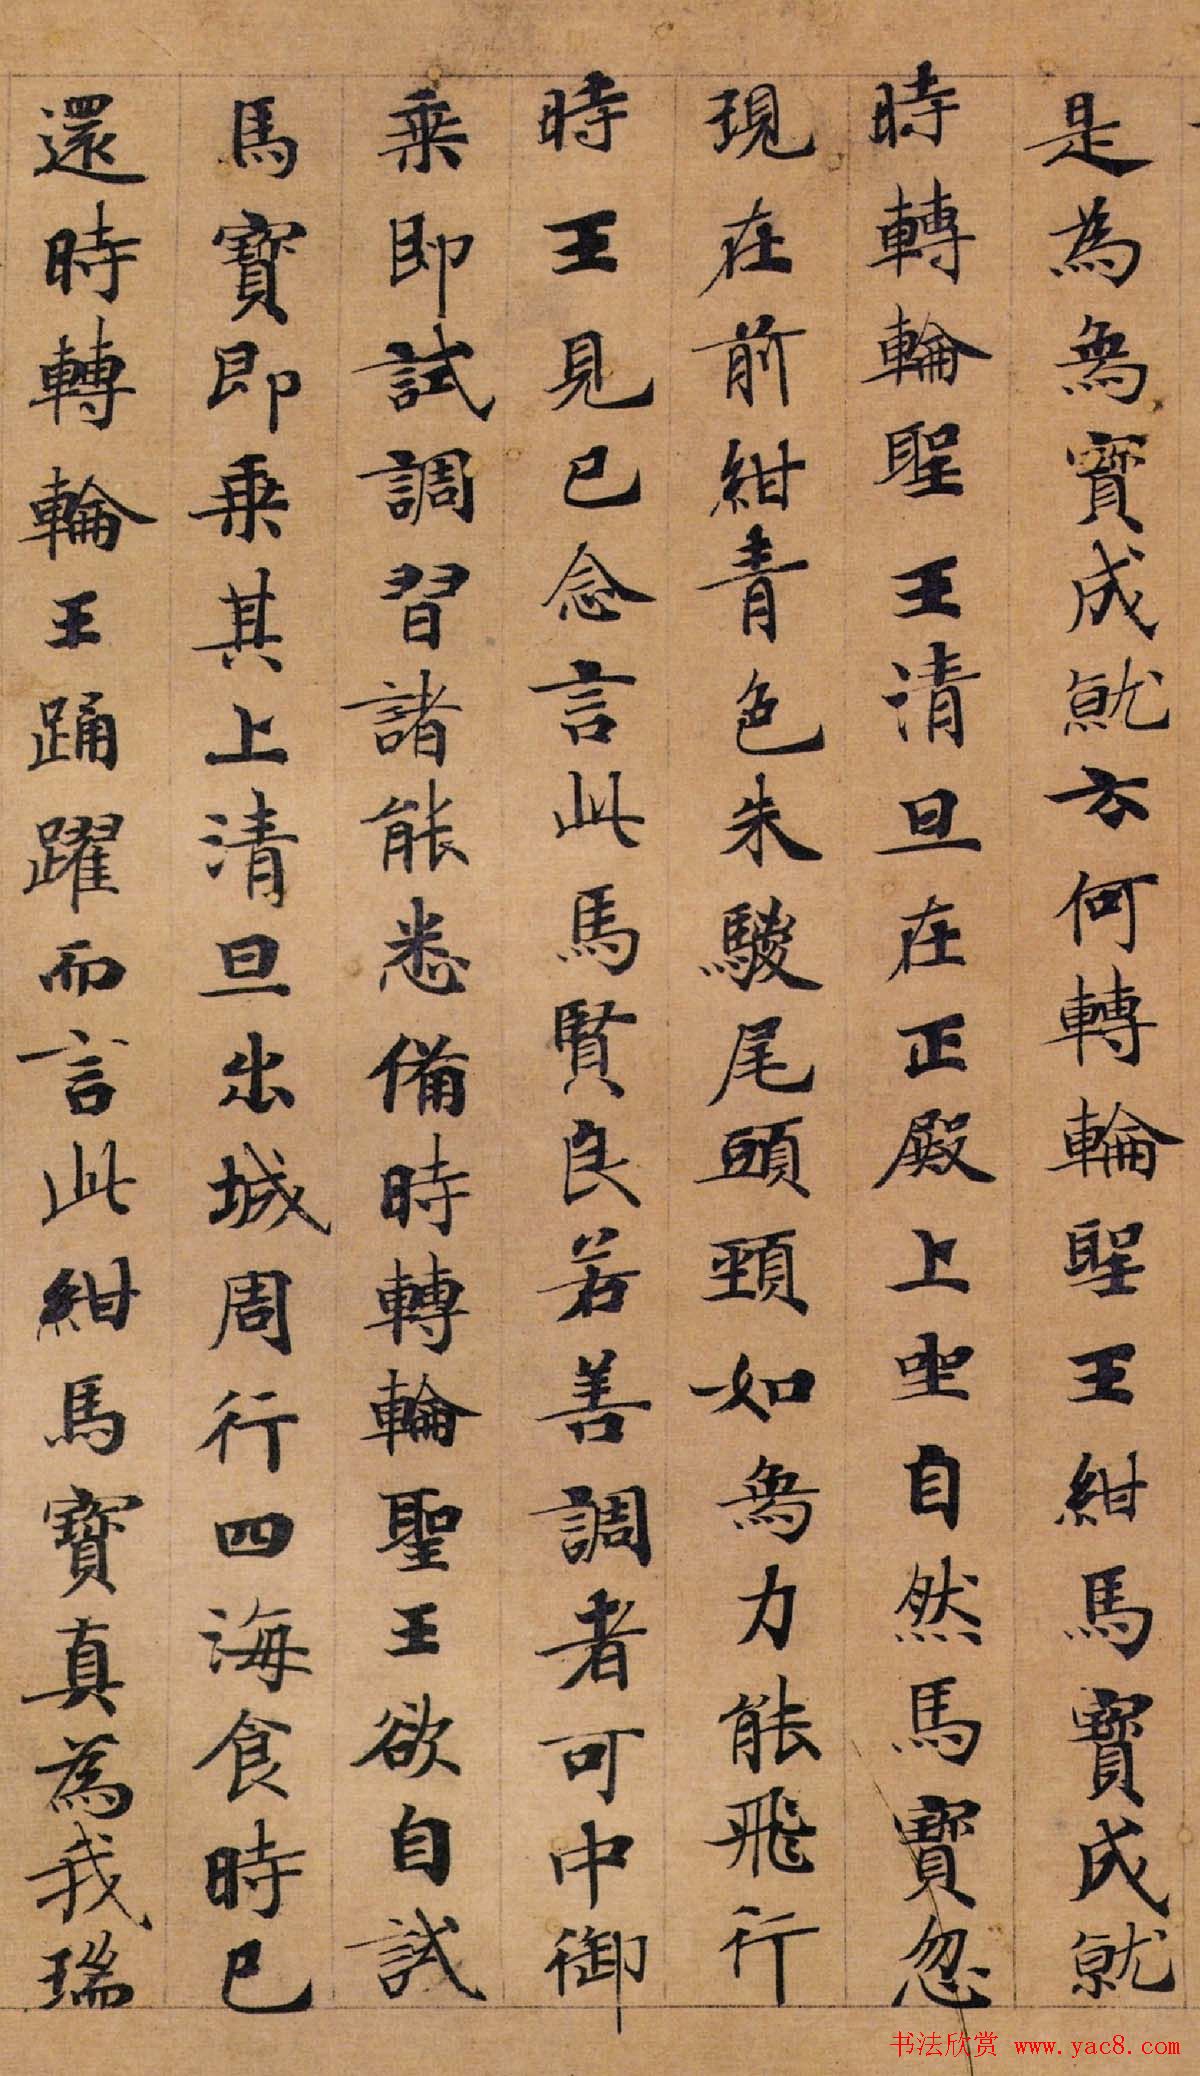 是為象寶成就云何轉輪聖王紺馬寶成就
時轉輪聖王清旦在正殿上坐自然馬寶忽
現在前紺青色朱騣尾頭頸如象力能飛行
時王見已念言此馬賢良若善調者可中御
乘即試調習諸能悉備時轉輪聖王欲自試
馬寶即乘其上清旦出城周行四海食時已
還時轉輪王踊躍而言此紺馬寶真為我瑞
书法欣赏 www.yac8.com